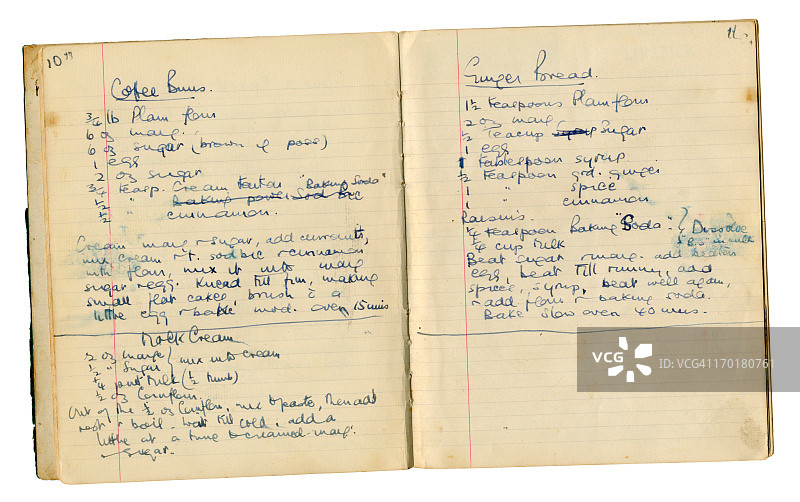 10
Coffee Buns.
3/4 lb Plain flour
6 oz marg.
6 oz sugar (brown if poss)
1 egg
2 oz sugar
3/4 teasp. Cream Tartar "Baking Soda"
1/2 " Baking powder Sod Bic
1/2 " cinnamon.
Cream marg & sugar, add currants,
mix cream of t. sod bic & cinnamon
into flour, mix it into marg
sugar & egg. Knead till firm, making
small flat cakes, brush c a
little egg & bake mod. oven 15 mins
Mock Cream
2 oz marge } mix into cream
1 1/2 " Sugar
1/4 pint Milk (1/2 )
1/2 oz Cornflour
Out of the 1/2 oz Cornflour, mix to paste, then add
rest & boil. Wait till cold, add a
little at a time to creamed marg.
& sugar.
11.
Ginger Bread.
1 1/2 Teaspoons Plain flour
2 oz marg
1/2 Teacup sugar Sugar
1 egg
1 tablespoon syrup
1/2 Teaspoon grd. ginger
1 " spice
1 " cinnamon
Raisins.
1/4 Teaspoon Baking "Soda" } Dissolve
1/4 cup Milk "B.S." in milk
Beat sugar & marg. add beaten
egg, beat till runny, add
spice, syrup, beat well again,
& add flour & baking soda.
Bake slow oven 40 mins.
VCG
VCG.COM
VCG41170180761